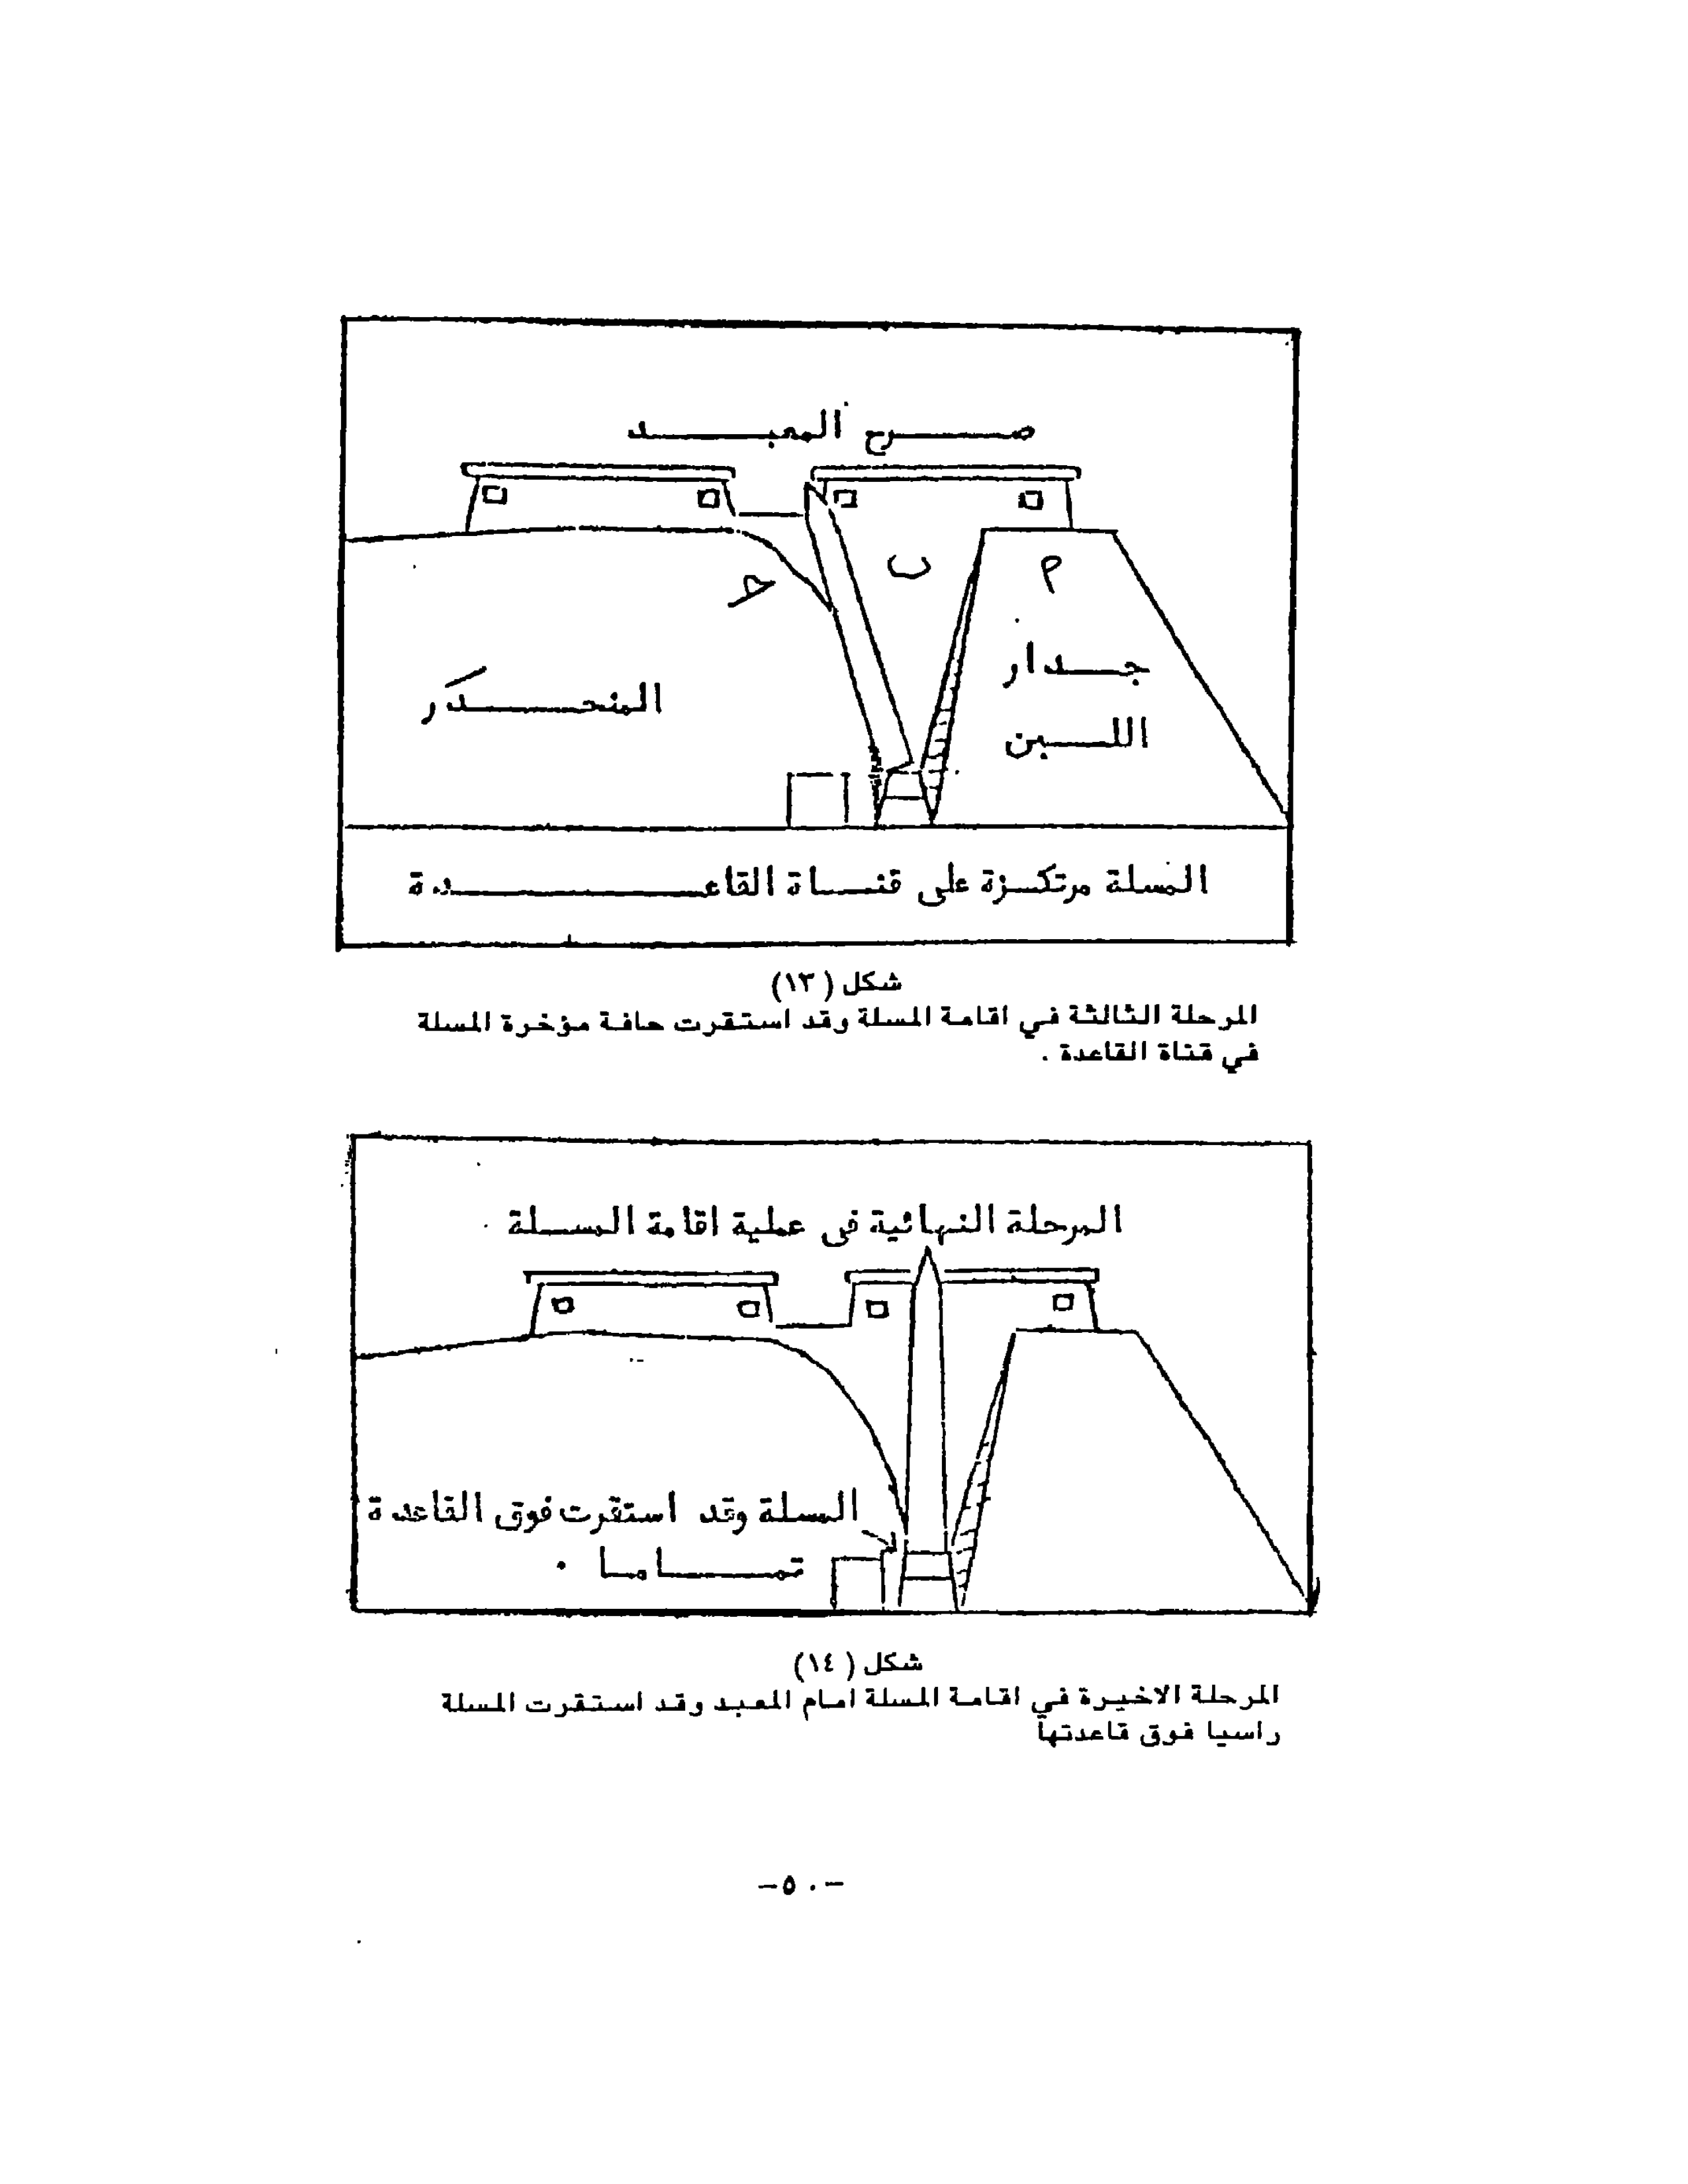 صرح المعبد
م
ب
حـ
جدار
اللبن
المنحدر
المسلة مرتكزة على قناة القاعدة
شكل (١٣)
المرحلة الثالثة في اقامة المسلة وقد استقرت حافة مؤخرة المسلة
في قناة القاعدة .
المرحلة النهائية فى عملية اقامة المسلة .
المسلة وقد استقرت فوق القاعدة
تماما .
شكل (١٤)
المرحلة الاخيرة في اقامة المسلة امام المعبد وقد استقرت المسلة
راسيا فوق قاعدتها
-٥٠-